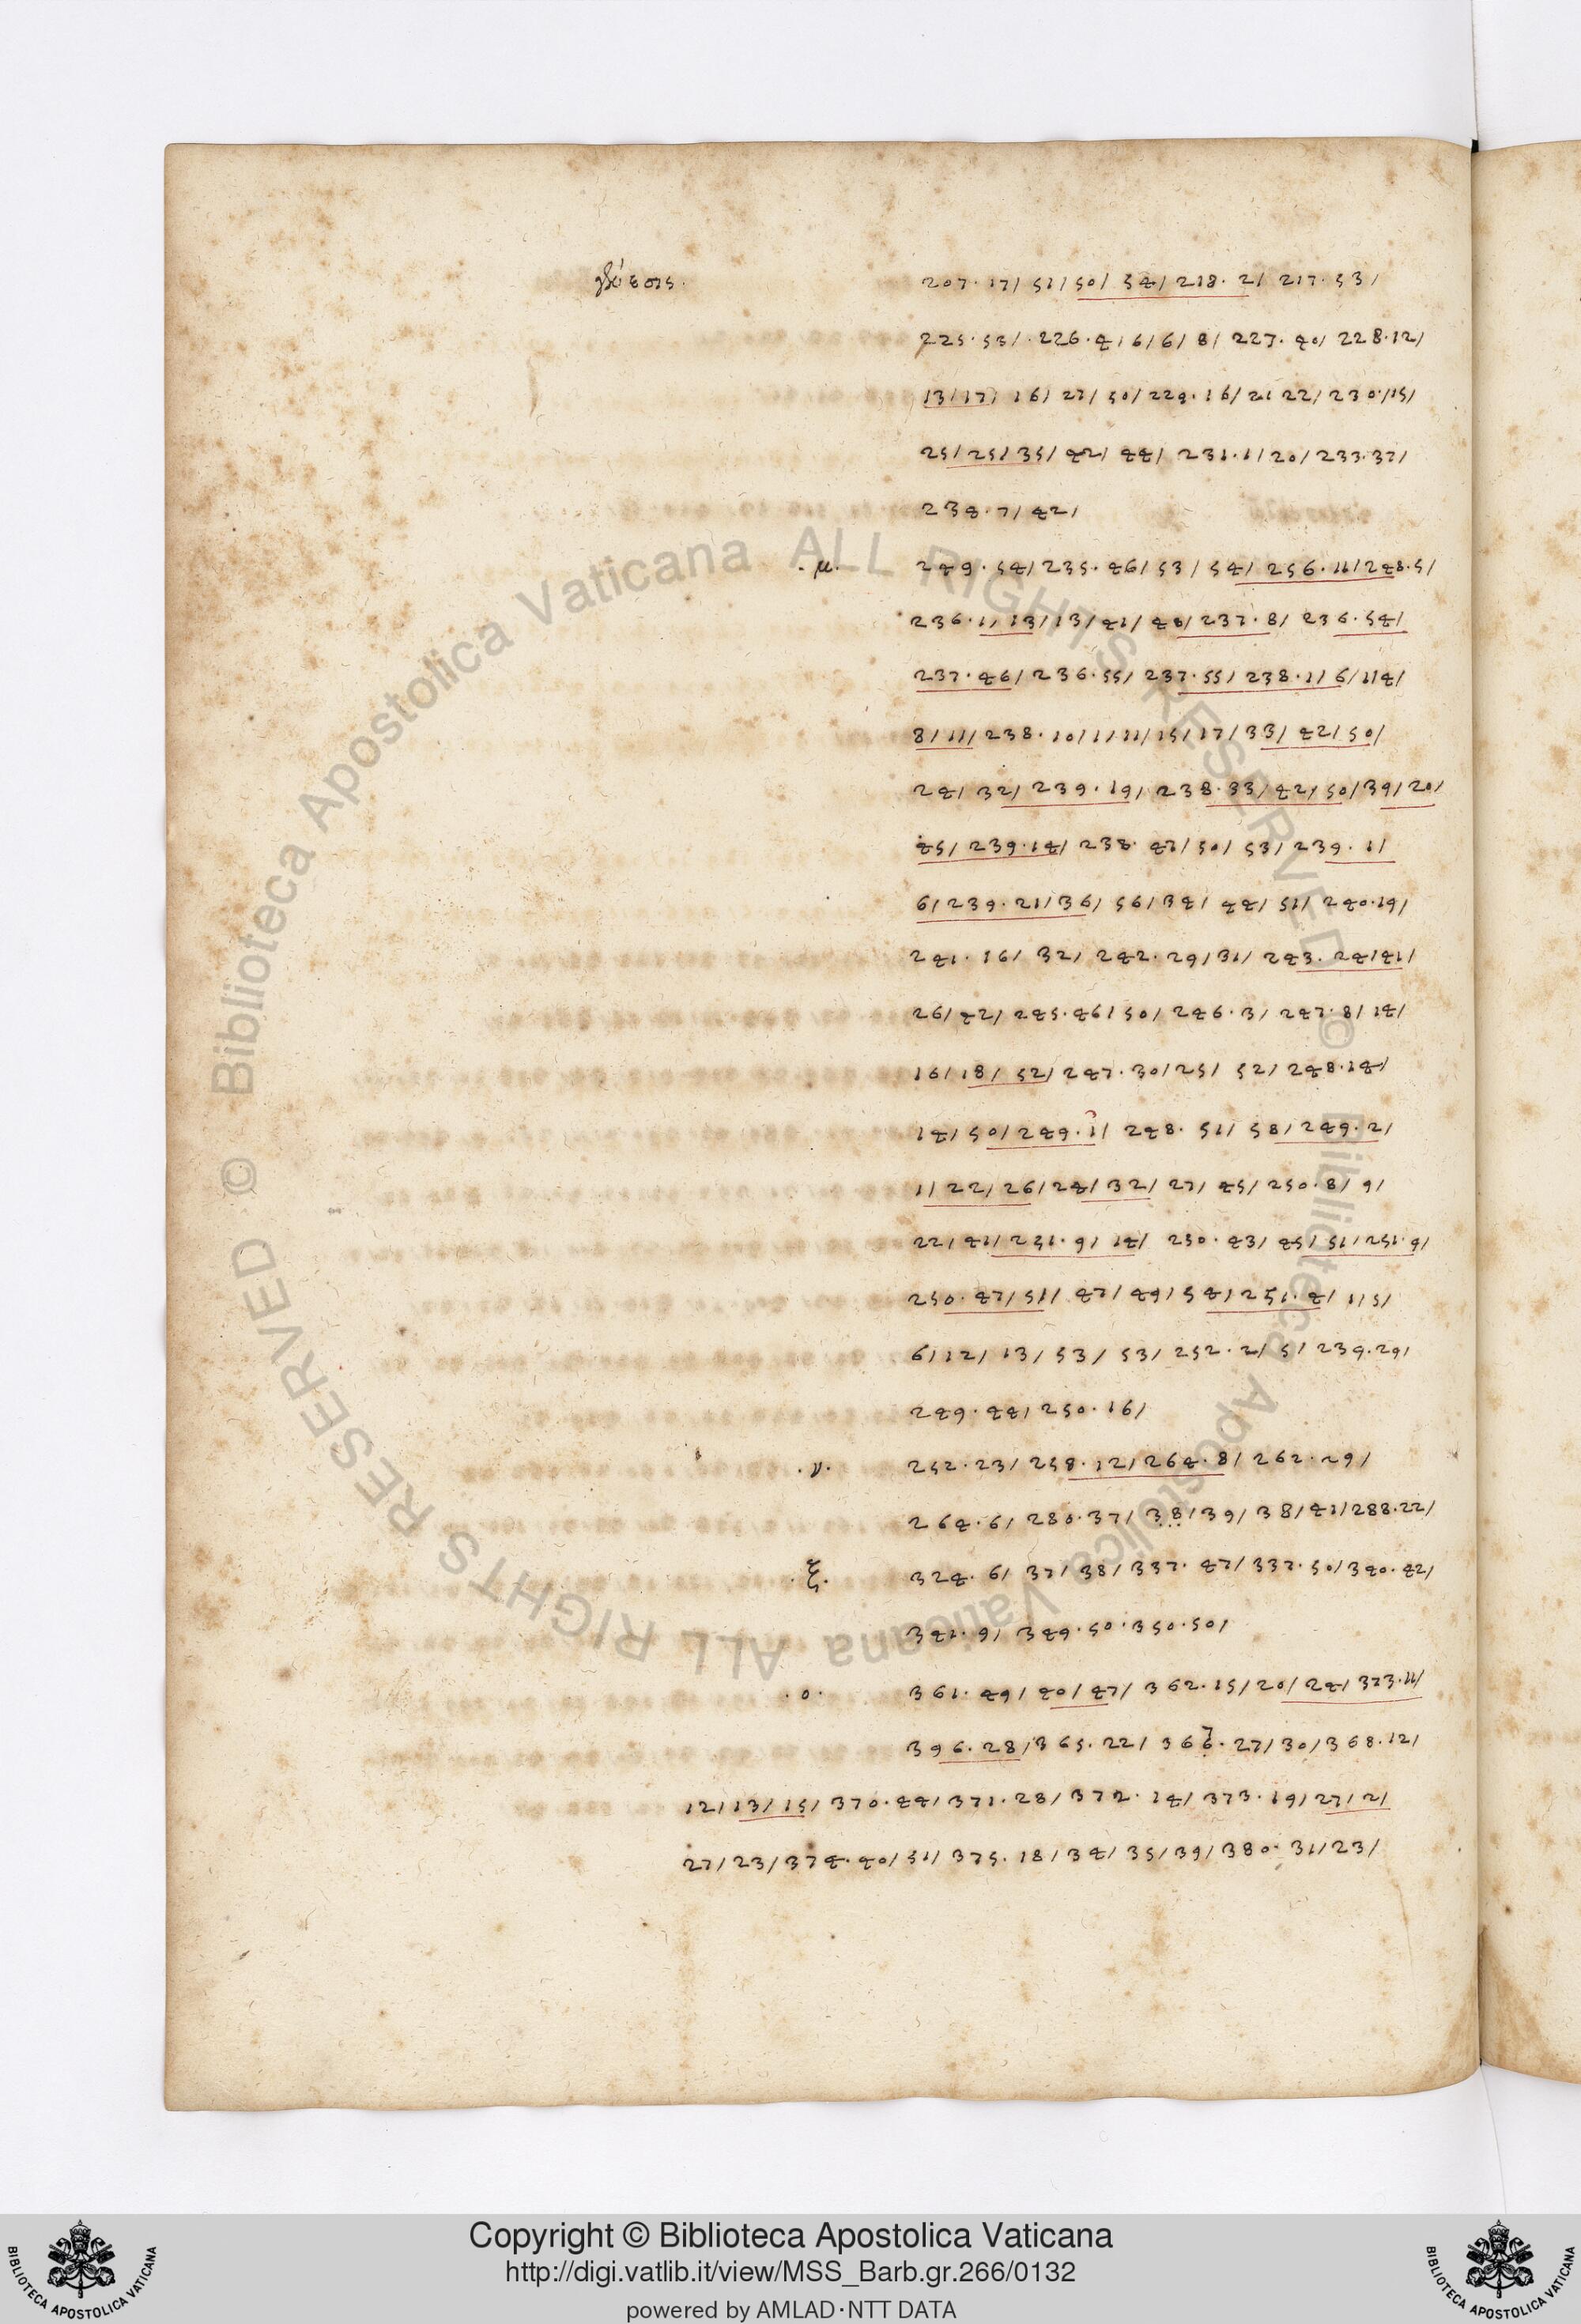 207·17/ 51/50/ 54/ 218·2/ 217·53/
225·53/·226·4/6/6/8/ 227·40/ 228·12/
13/17/ 16/27/50/229·16/21 22/230·/15/
25/25/35/42/44/ 231·1/20/233·37/
234·7/42/
·μ· 249·54/235·46/53/54/256·11/248·5/
236·1/13/13/41/48/237·8/ 236·54/
237·46/236·55/237·55/238·1/6/114/
8/11/238·10/1/11/15/17/33/42/50/
24/32/239·19/238·33/42/50/39/20/
45/239·14/238·47/50/53/239·1/
6/239·21/36/56/34/44/51/240·19/
241·16/32/242·29/31/243·24/41/
26/42/245·46/50/246·3/247·8/14/
16/18/52/247·30/25/52/248·14/
14/50/249·1/248·51/58/249·2/
1/22/26/24/32/27/45/250·8/9/
22/41/251·9/14/250·43/45/51/251·9/
250·47/51/47/49/54/251·4/1/5/
6/12/13/53/53/252·2/5/239·29/
249·44/250·16/
·ν· 252·23/258·12/264·8/262·29/
264·6/280·37/38/39/38/41/288·22/
·ξ· 324·6/37/38/337·47/337·50/340·42/
341·9/349·50·350·50/
·ο· 361·49/40/47/362·15/20/24/373·11/
396·28/365·22/366·27/30/368·12/
12/13/15/370·44/371·28/372·14/373·19/27/2/
27/23/374·40/51/375·18/34/35/39/380·31/23/
© Biblioteca Apostolica Vaticana ALL RIGHTS RESERVED
© Biblioteca Apostolica Vaticana ALL RIGHTS RESERVED
Copyright © Biblioteca Apostolica Vaticana
http://digi.vatlib.it/view/MSS_Barb.gr.266/0132
powered by AMLAD·NTT DATA
BIBLIOTECA APOSTOLICA VATICANA
BIBLIOTECA APOSTOLICA VATICANA